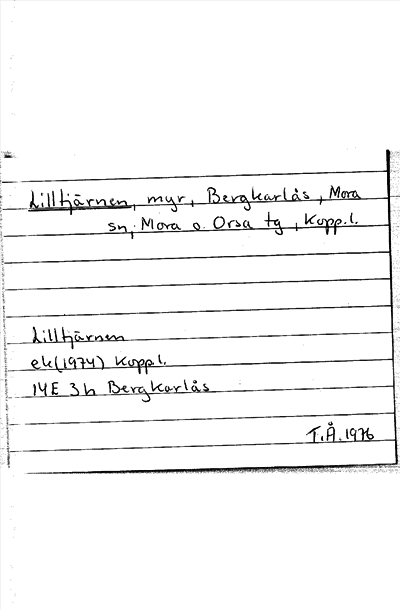 Lilltjärnen, myr, Bergkarlås, Mora
sn, Mora o. Orsa tg, Kopp.l.
Lilltjärnen
ek(1974) Kopp.l.
14E 3h Bergkarlås
T.Å.1976